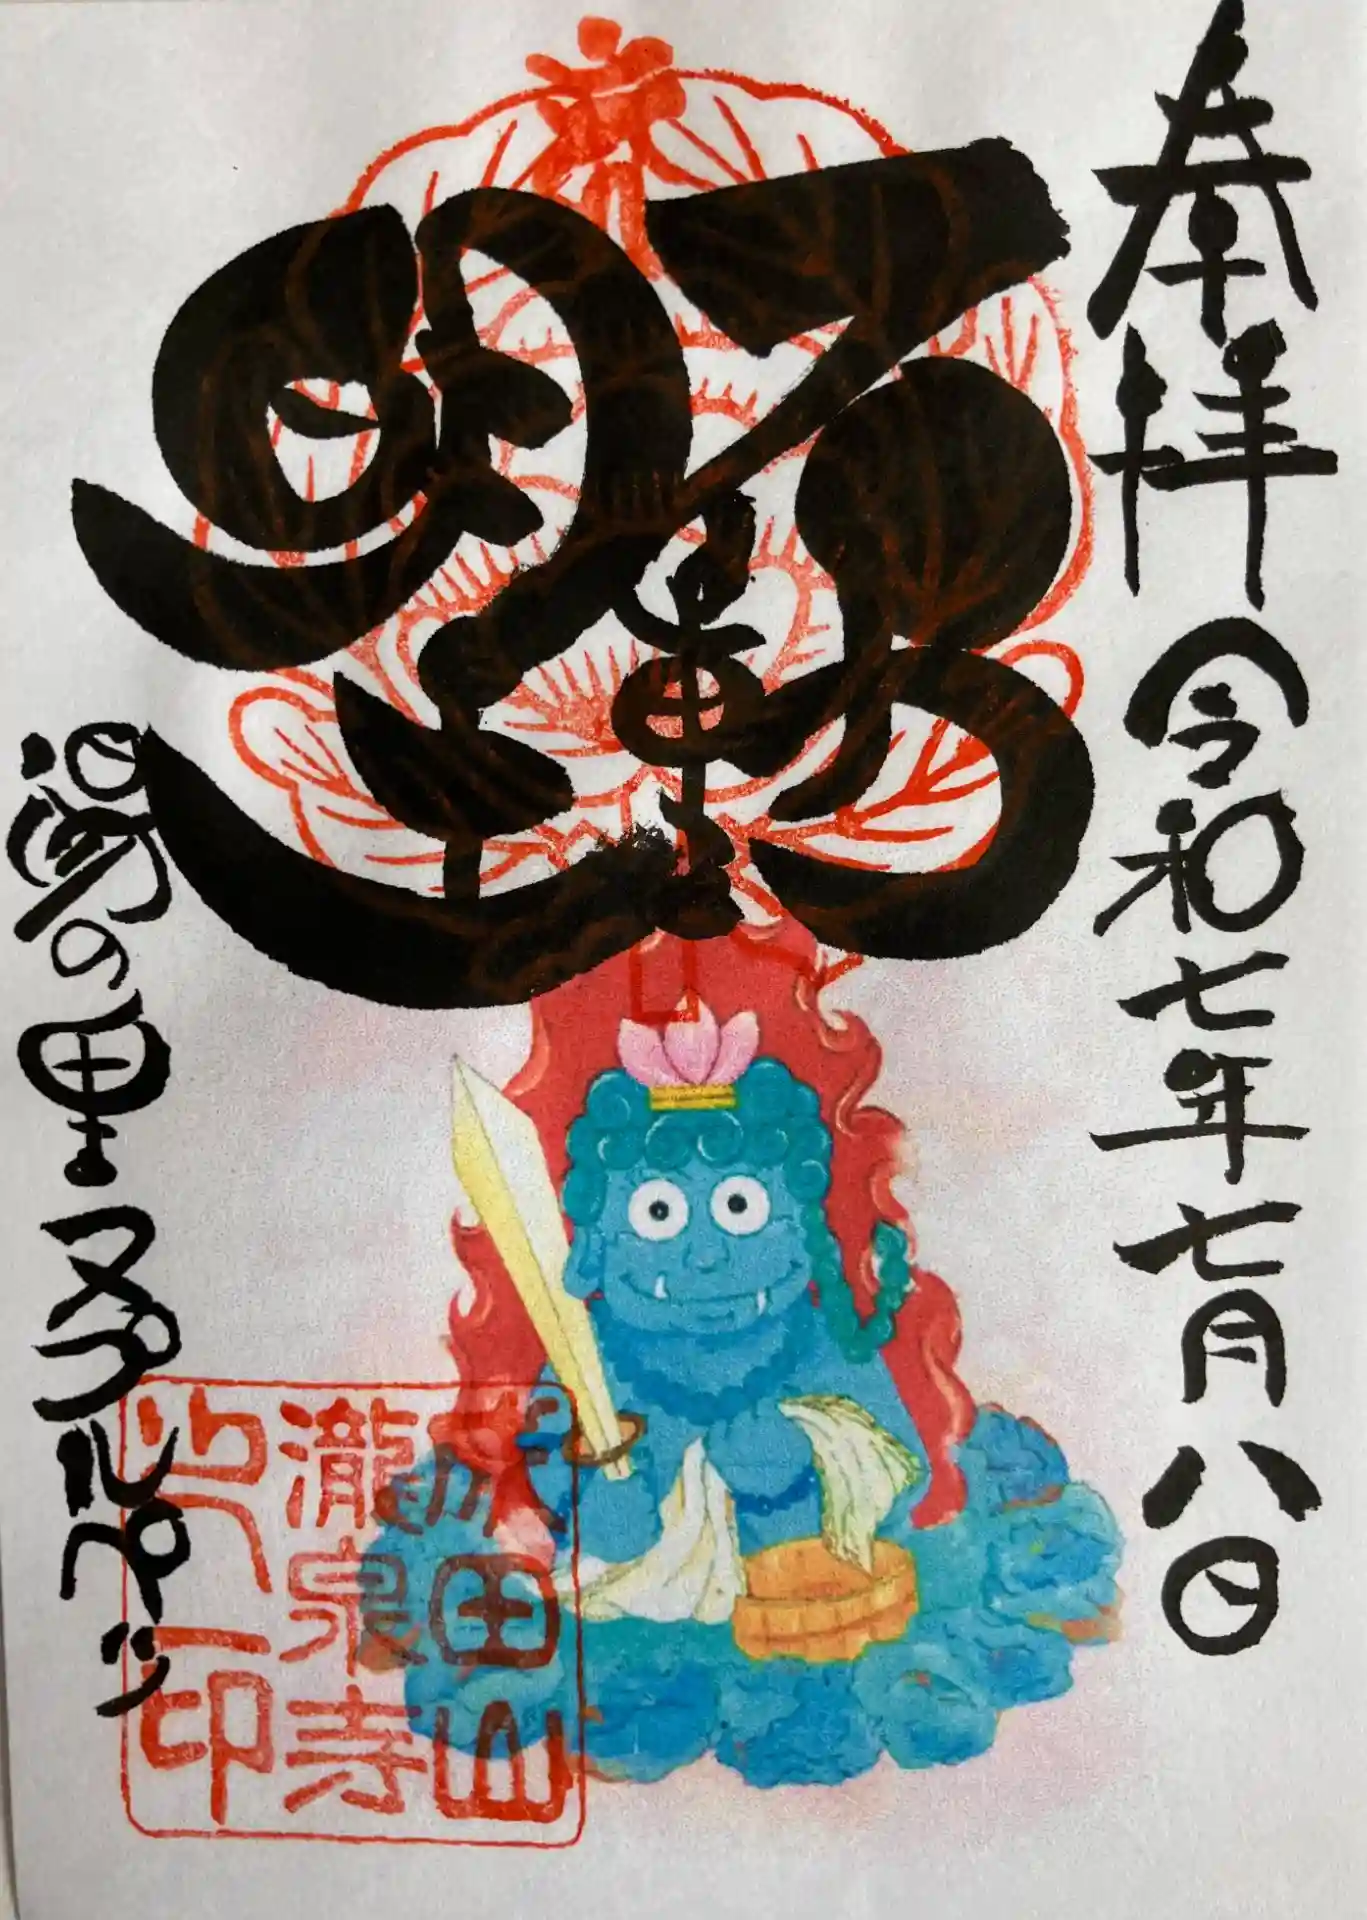 奉拝 令和七年七月八日
不動
明王
湯の里ヌプルペツ
成田山
瀧泉寺
之印